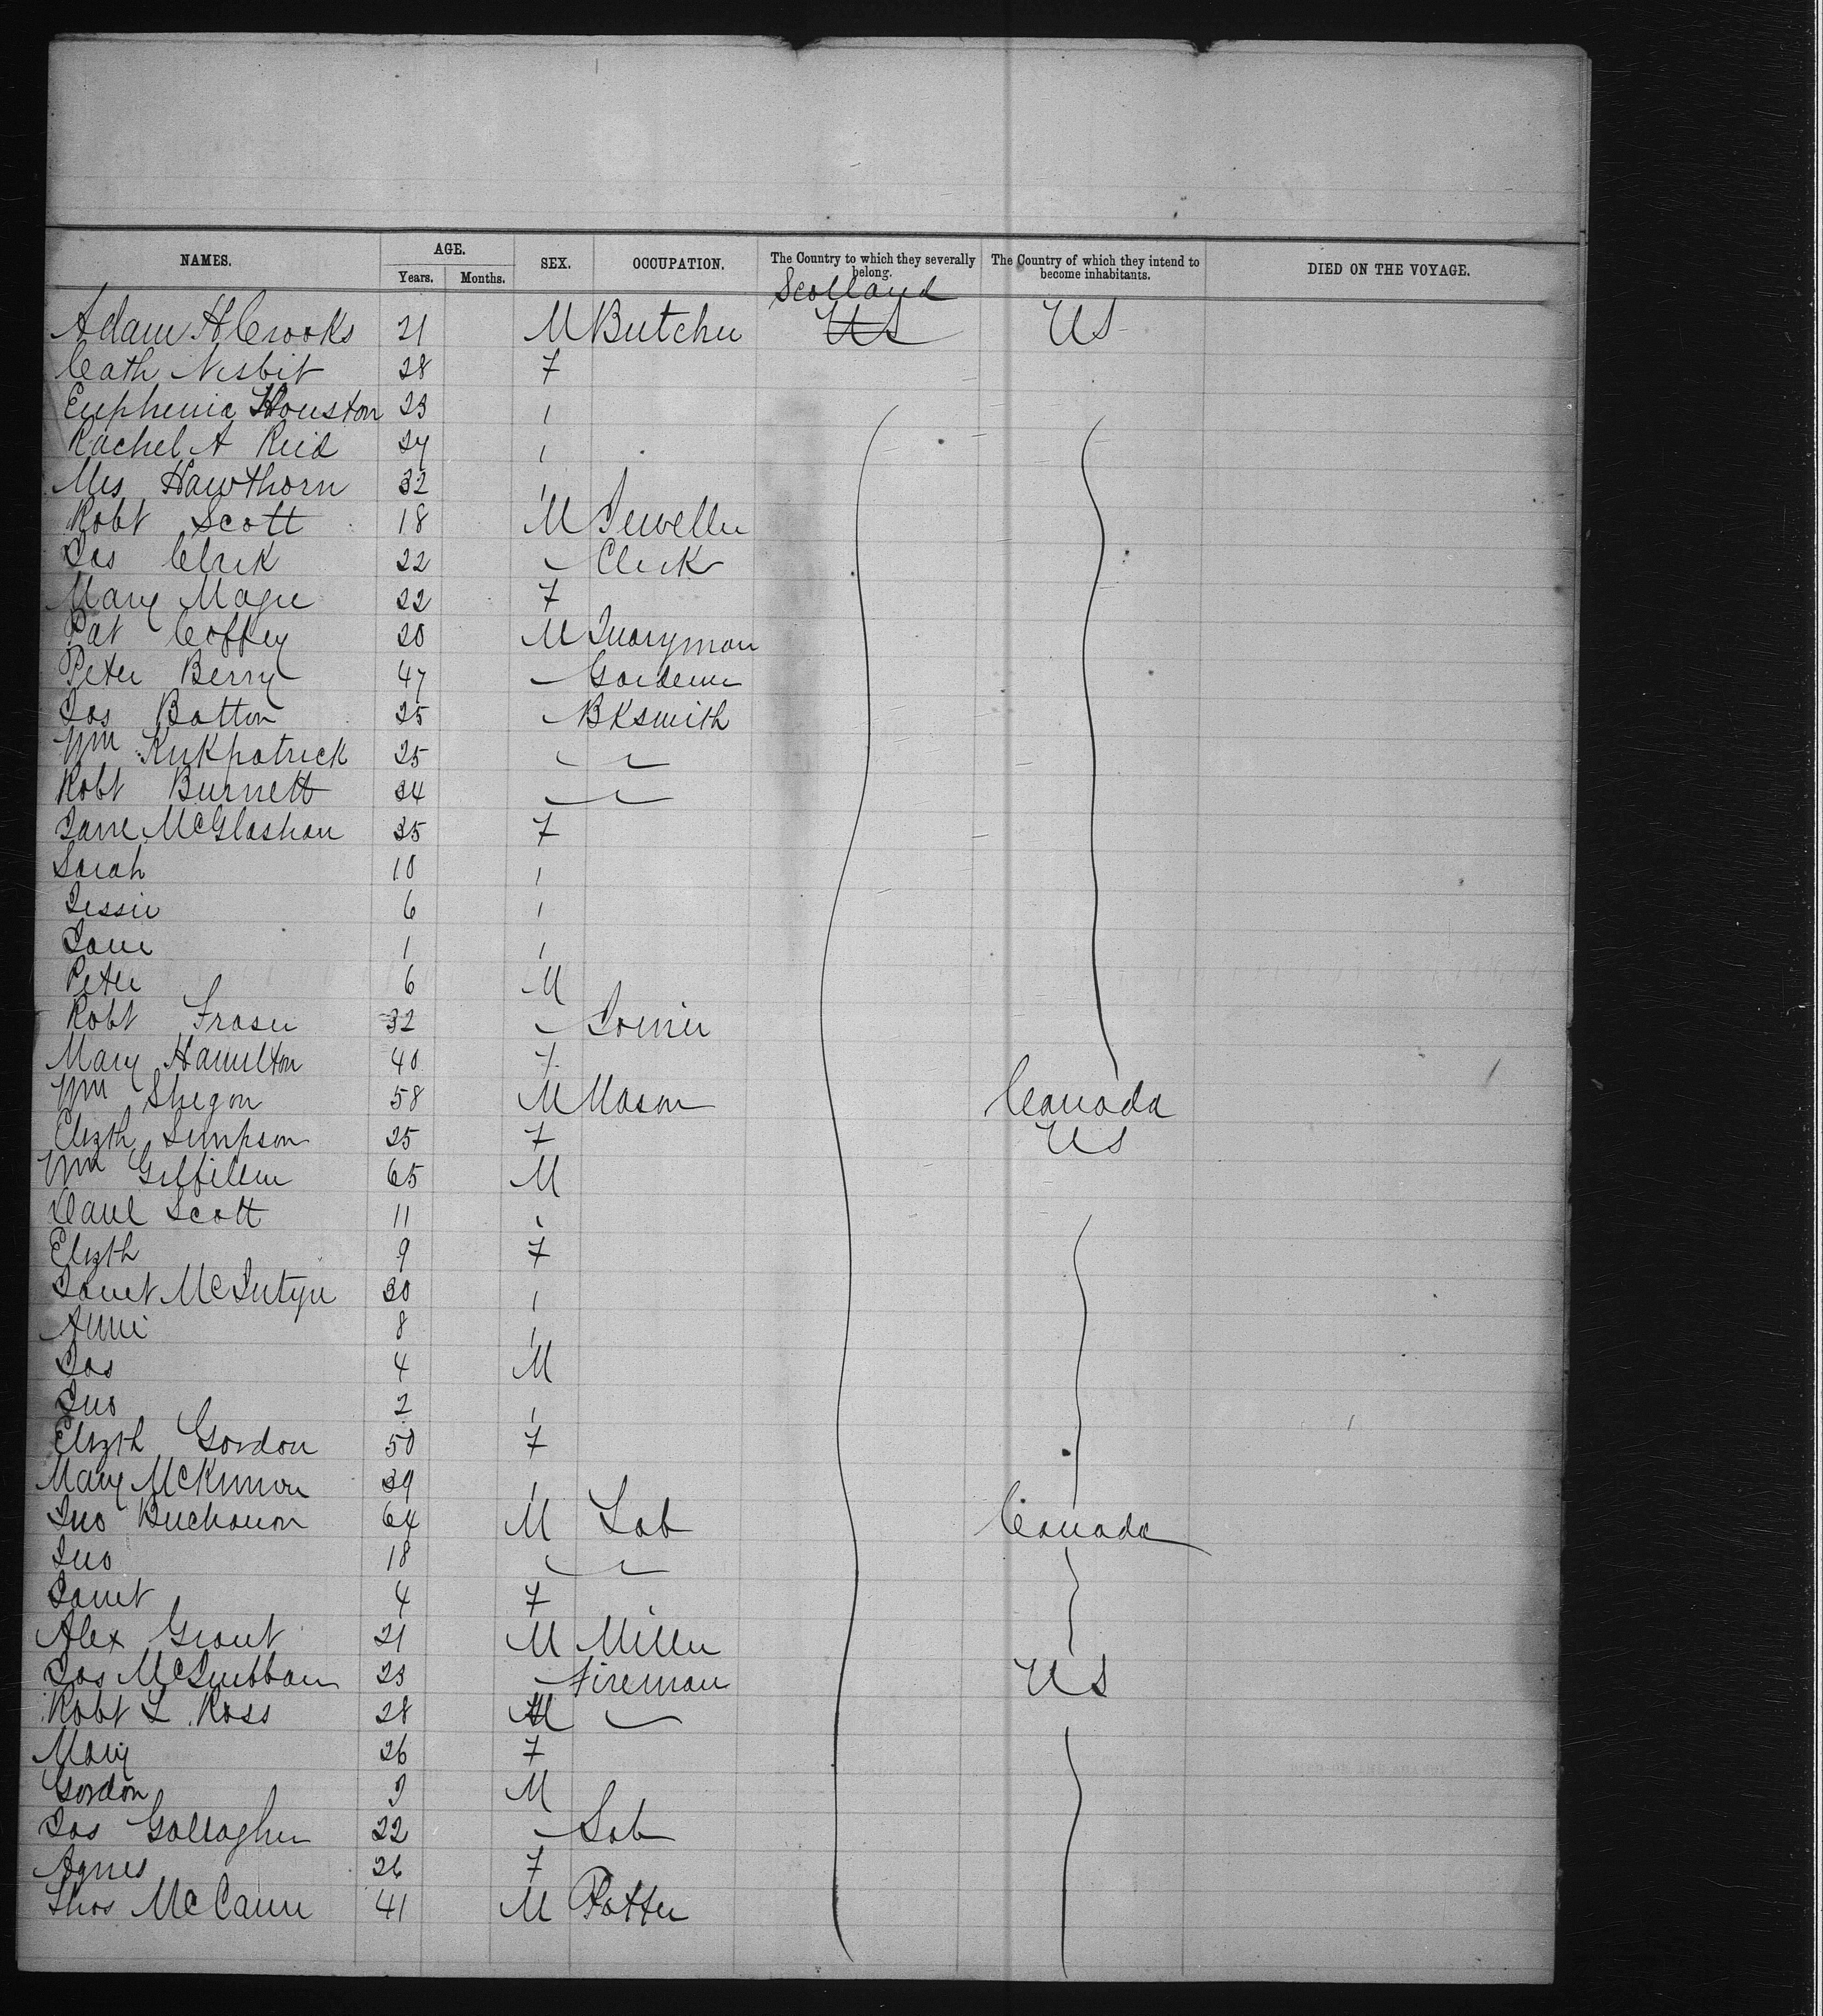 NAMES. AGE. SEX. OCCUPATION. The Country to which they severally belong. The Country of which they intend to become inhabitants. DIED ON THE VOYAGE.
Years. Months.
Scotland
Adam H Crooks 21 M Butcher US US
Cath Nisbit 28 F
Euphemia Houston 23 "
Rachel A Reid 24 "
Mrs Hawthorn 32 "
Robt Scott 18 M Jeweller
Jas Clark 22 " Clerk
Mary Magee 22 F
Pat Coffey 20 M Quarryman
Peter Berry 47 " Gardener
Jas Batton 25 " Bksmith
Wm Kirkpatrick 25 " "
Robt Burnett 34 " "
Jane McGlashan 35 F
Sarah 10 "
Jessie 6 "
Jane 1 "
Peter 6 M
Robt Fraser 32 " Joiner
Mary Hamilton 40 F
Wm Shegon 58 M Mason Canada
Elizth Simpson 25 F US
Wm Gilfillen 65 M
Danl Scott 11 "
Elizth 9 F
Janet McIntyre 30 "
Annie 8 "
Jas 4 M
Jno 2 "
Elizth Gordon 50 F
Mary McKinnon 39 "
Jno Buchanan 64 M Lab Canada
Jno 18 " "
Janet 4 F
Alex Grant 21 M Miller
Jas McQuibban 23 " Fireman US
Robt L Ross 28 M "
Mary 26 F
Gordon M
Jas Gallagher 22 " Lab
Agnes 26 F
Thos McCann 41 M Potter